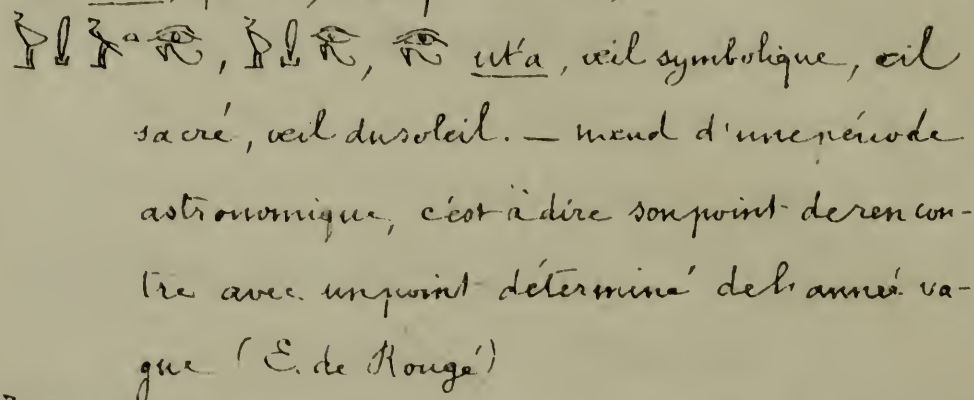 𓅱𓍑𓄿𓏏𓂀, 𓅱𓍑𓂀, 𓂀 ut'a, œil symbolique, œil
sacré, œil du soleil. — nœud d'une période
astronomique, c'est à dire son point de rencon-
tre avec un point déterminé de l'année va-
gue (E. de Rougé)